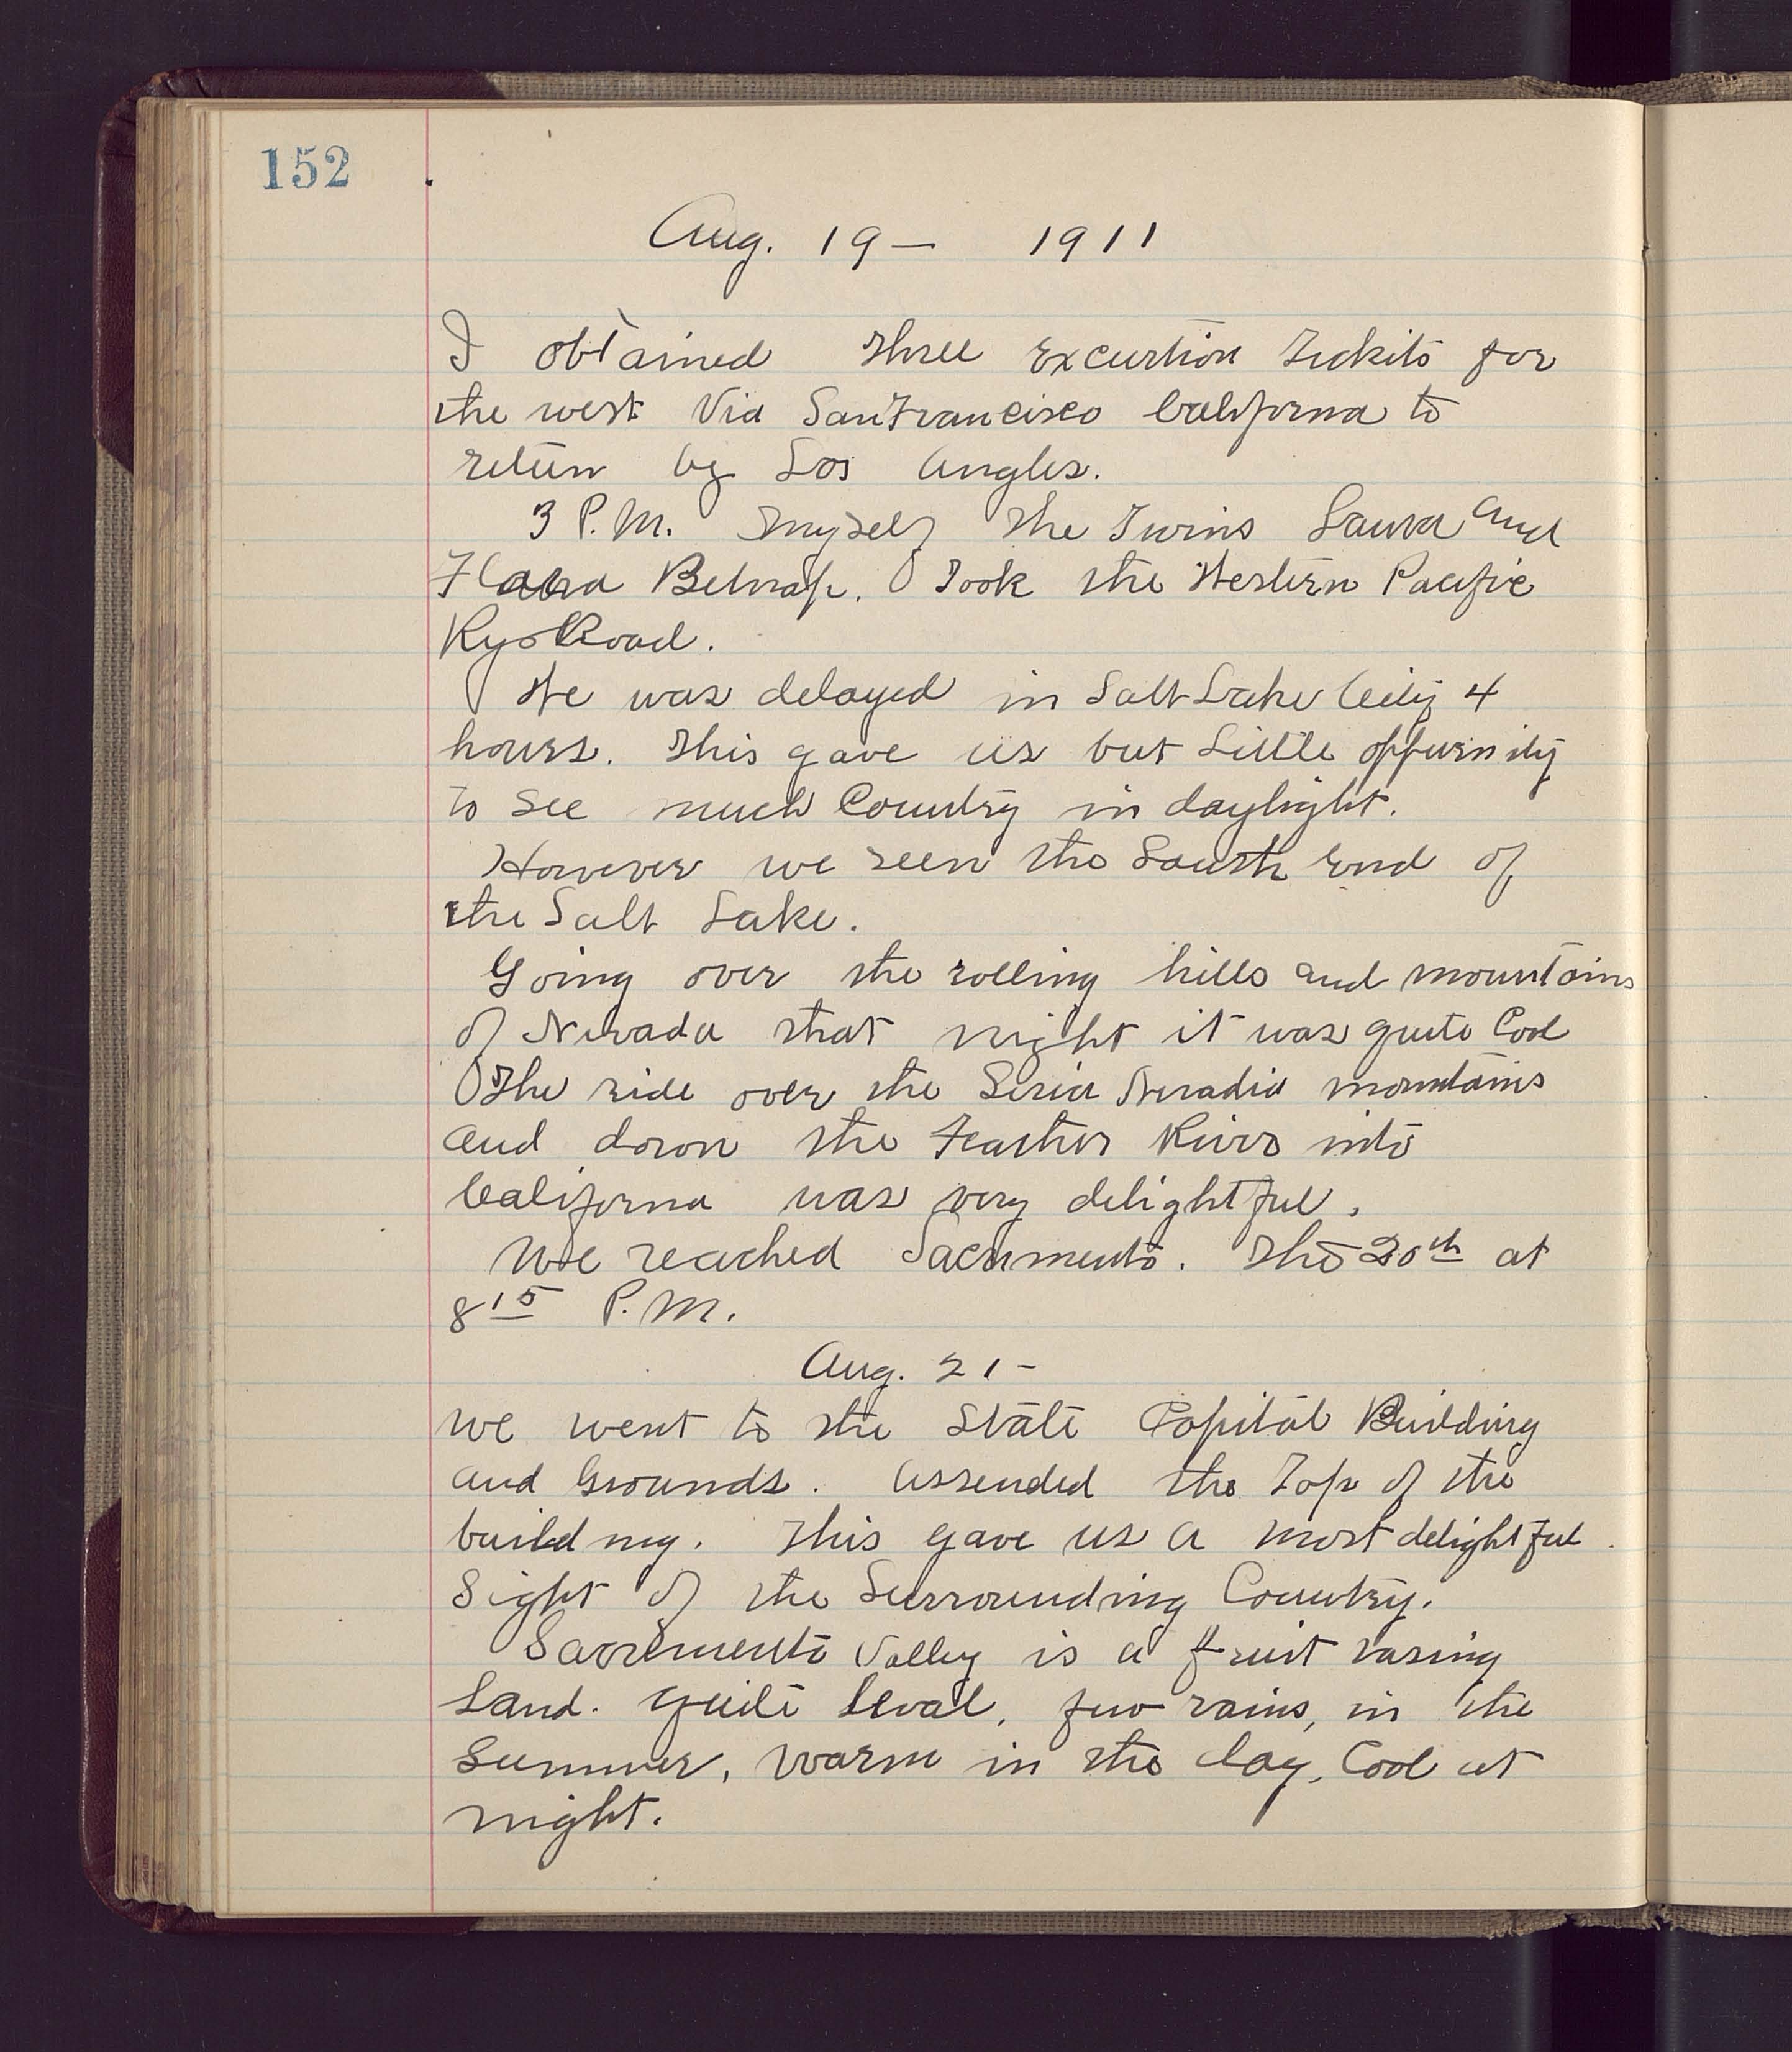 152
Aug. 19 — 1911
I obtained three Excurtion Tickits for
the west Via SanFrancisco Californa to
return by Los Angles.
3 P.M. myself the Twins Laura and
Flara Belnap. Took the Western Pacific
Ry Road.
We was delayed in Salt Lake City 4
hours. This gave us but Little oppurnity
to see much Country in daylight.
However we seen the South End of
the Salt Lake.
Going over the rolling hills and mountains
of Nevada that night it was quite Cool
The ride over the Seria Neradia mountains
and down the Feather River into
Californa was very delightful.
We reached Sacramento. The 20th at
8 15 P.M.
Aug. 21 -
we went to the State Capital Building
and Grounds. Assended the Top of the
building. This gave us a most delightful
Sight of the Surrounding Country.
Sacremento Valley is a fruit rasing
Land. quite leval, few rains, in the
Summer, warm in the day, Cool at
night.